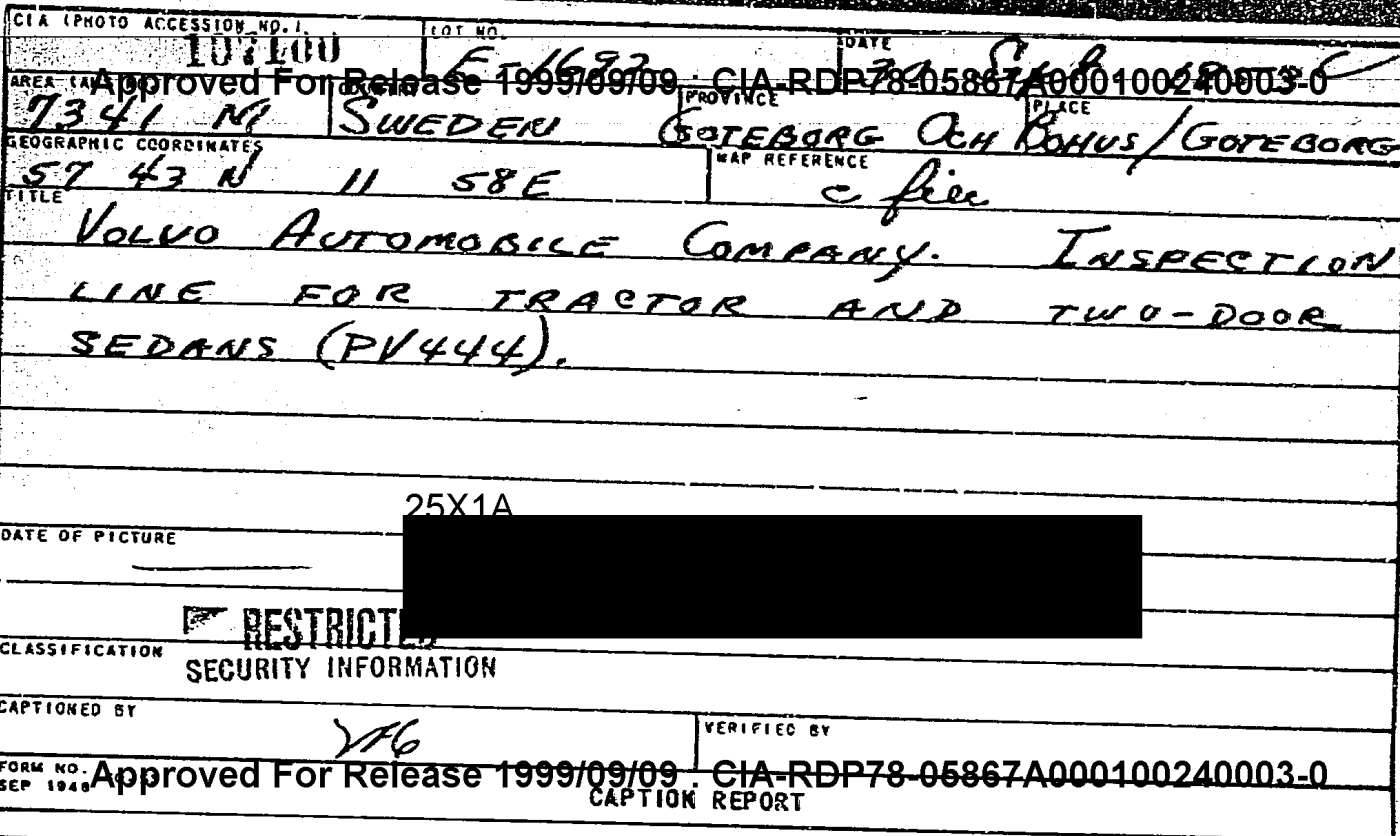 CIA (PHOTO ACCESSION NO.) LOT NO. DATE
E-1692
Approved For Release 1999/09/09 : CIA-RDP78-05867A000100240003-0
AREA PROVINCE PLACE
7341 SWEDEN GOTEBORG OCH BOHUS/GOTEBORG
GEOGRAPHIC COORDINATES MAP REFERENCE
57 43 N 11 58E
TITLE
VOLVO AUTOMOBILE COMPANY. INSPECTION
LINE FOR TRACTOR AND TWO-DOOR
SEDANS (PV444).
25X1A
DATE OF PICTURE
RESTRICTED
CLASSIFICATION
SECURITY INFORMATION
CAPTIONED BY VERIFIED BY
FORM NO.
Approved For Release 1999/09/09 : CIA-RDP78-05867A000100240003-0
SEP 1948
CAPTION REPORT